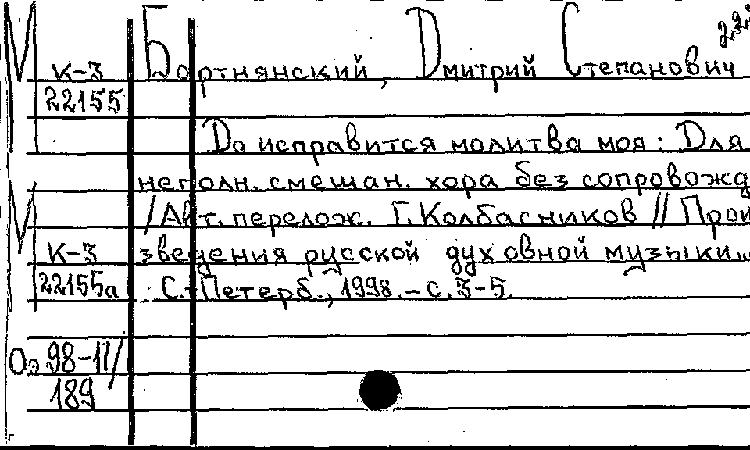 К-3
22155
К-3
22155а
98-11/
189
Бортнянский, Дмитрий Степанович
Да исправится молитва моя: Для
неполн. смешан. хора без сопровожд
/ Авт. перелож. Г. Колбасников // Прои
зведения русской духовной музыки...
С.-Петерб., 1998. - с. 3-5.